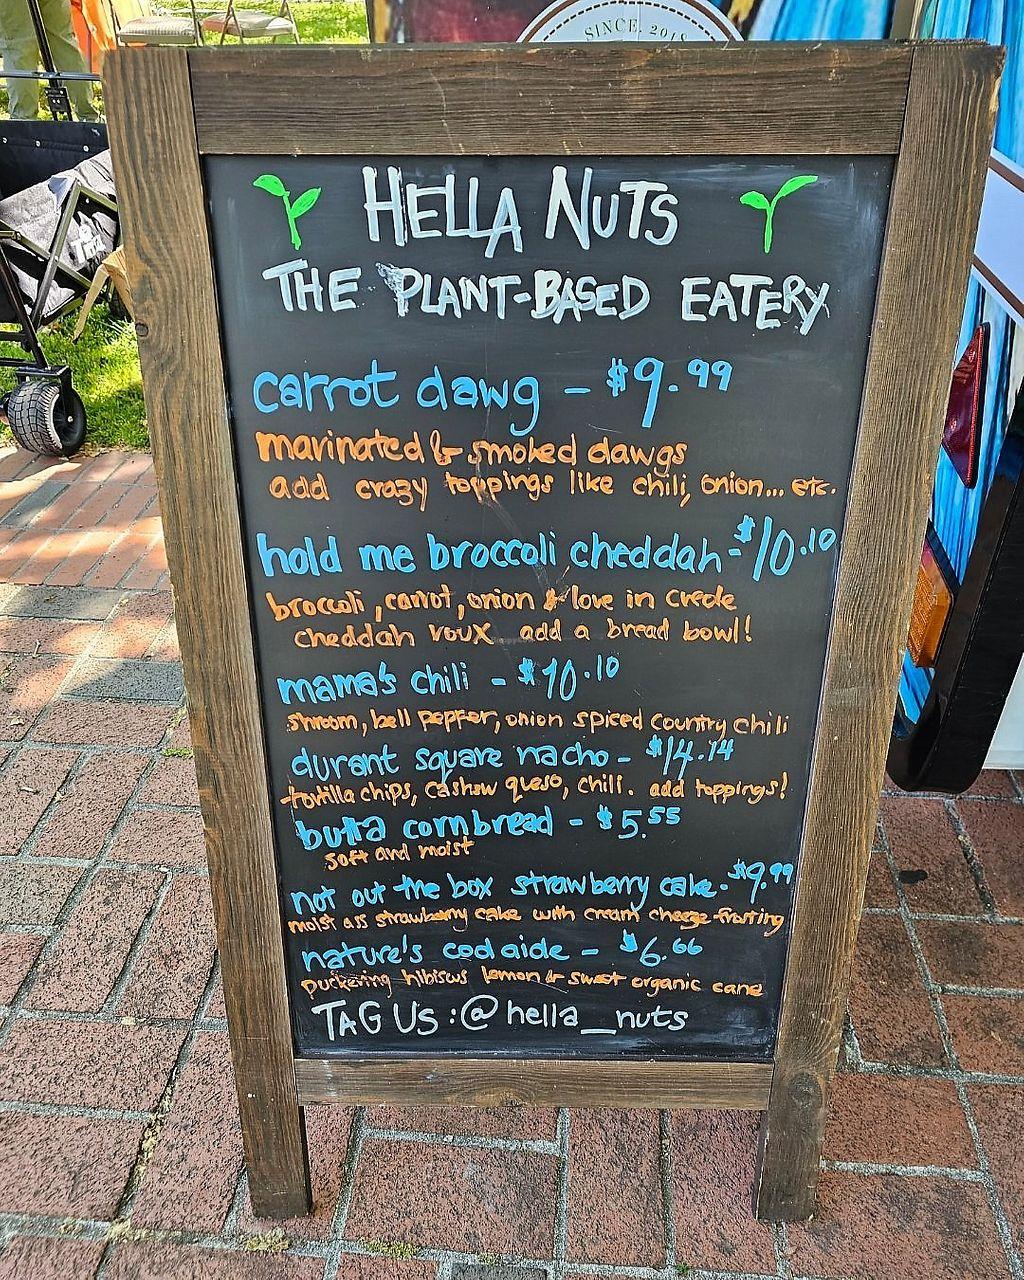 SINCE. 2018
HELLA NUTS
THE PLANT-BASED EATERY
carrot dawg - $9.99
marinated & smoked dawgs
add crazy toppings like chili, onion... etc.
hold me broccoli cheddah - $10.10
broccoli, carrot, onion & love in creole
cheddah roux. add a bread bowl!
mama's chili - $10.10
shroom, bell pepper, onion spiced country chili
durant square nacho - $14.14
tortilla chips, cashew queso, chili. add toppings!
butta cornbread - $5.55
soft and moist
not out the box strawberry cake - $9.99
moist ass strawberry cake with cream cheeze frosting
nature's cod aide - $6.66
puckering hibiscus lemon & sweet organic cane
TAG US : @hella_nuts